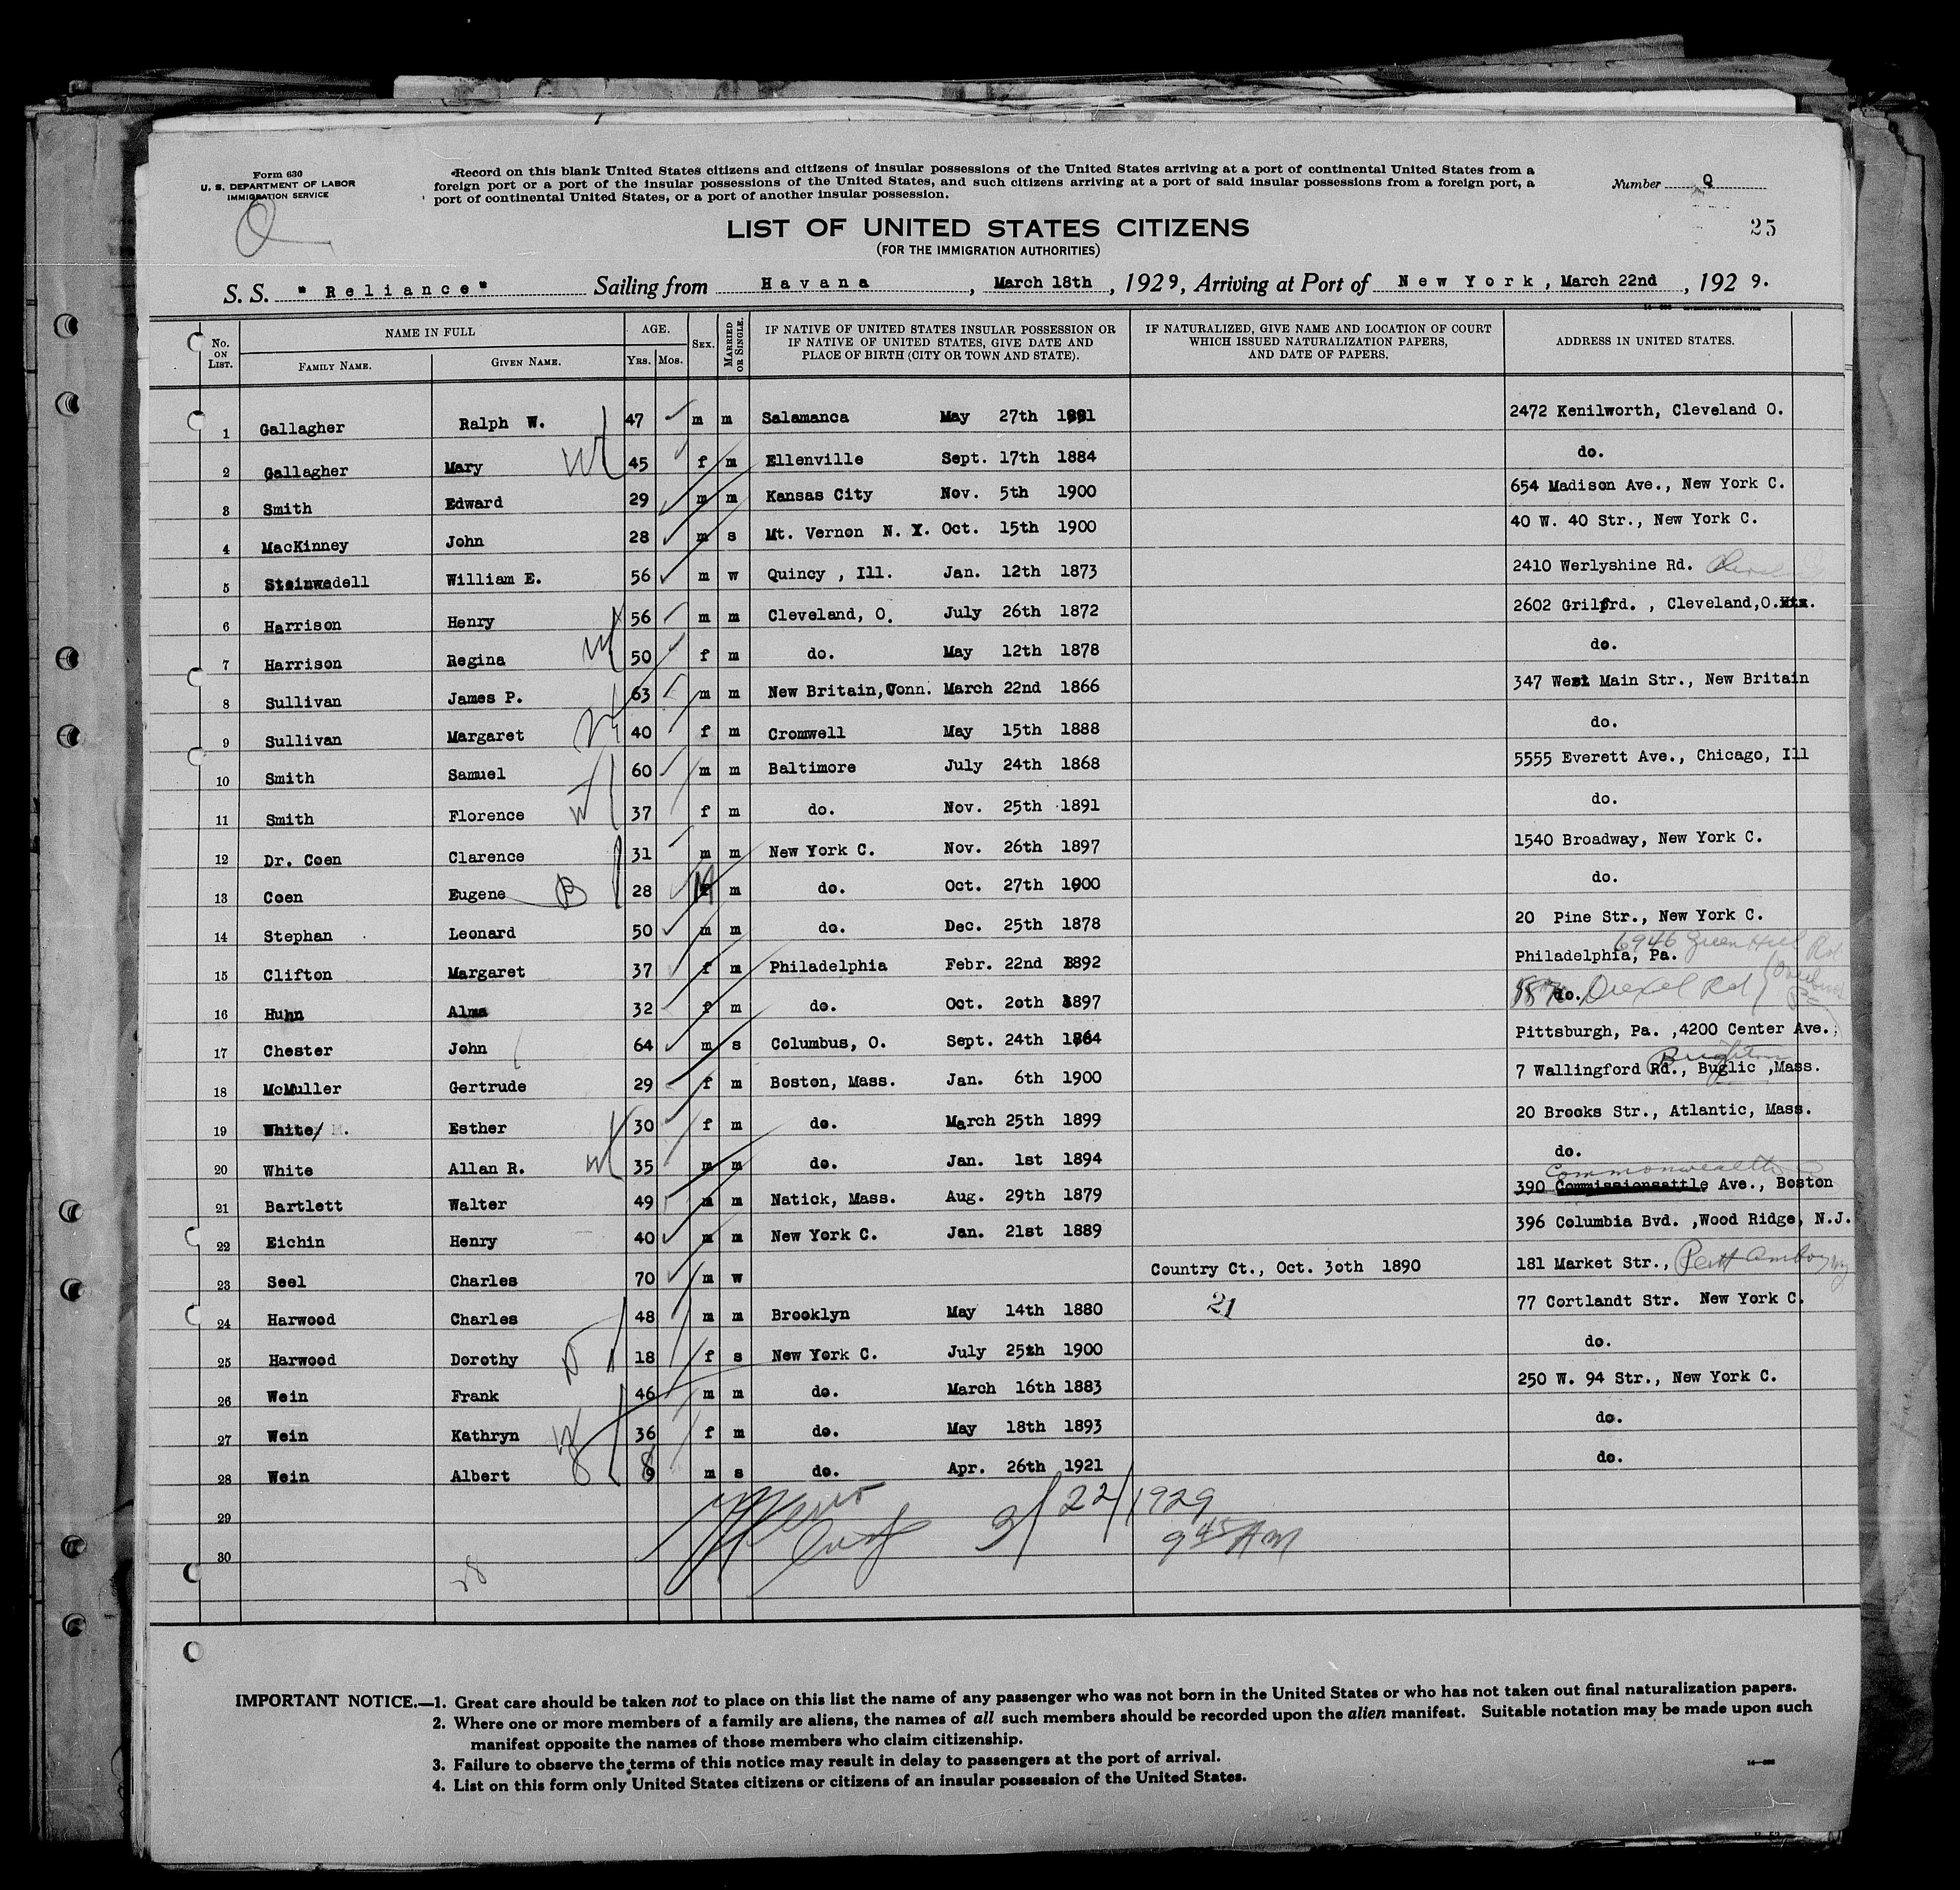 Form 630
U. S. DEPARTMENT OF LABOR
IMMIGRATION SERVICE
Record on this blank United States citizens and citizens of insular possessions of the United States arriving at a port of continental United States from a
foreign port or a port of the insular possessions of the United States, and such citizens arriving at a port of said insular possessions from a foreign port, a
port of continental United States, or a port of another insular possession.
Number Q
25
LIST OF UNITED STATES CITIZENS
(FOR THE IMMIGRATION AUTHORITIES)
S. S. "Reliance" Sailing from Havana, March 18th, 1929, Arriving at Port of New York, March 22nd, 1929.
No. ON LIST. NAME IN FULL FAMILY NAME. GIVEN NAME. AGE. YRS. MOS. SEX. MARRIED OR SINGLE. IF NATIVE OF UNITED STATES INSULAR POSSESSION OR IF NATIVE OF UNITED STATES, GIVE DATE AND PLACE OF BIRTH (CITY OR TOWN AND STATE). IF NATURALIZED, GIVE NAME AND LOCATION OF COURT WHICH ISSUED NATURALIZATION PAPERS, AND DATE OF PAPERS. ADDRESS IN UNITED STATES.
1 Gallagher Ralph W. 47 m m Salamanca May 27th 1881 2472 Kenilworth, Cleveland O.
2 Gallagher Mary 45 f m Ellenville Sept. 17th 1884 do.
3 Smith Edward 29 m m Kansas City Nov. 5th 1900 654 Madison Ave., New York C.
4 MacKinney John 28 m s Mt. Vernon N. Y. Oct. 15th 1900 40 W. 40 Str., New York C.
5 Steinwedell William E. 56 m w Quincy , Ill. Jan. 12th 1873 2410 Werlyshine Rd. Cleveland
6 Harrison Henry 56 m m Cleveland, O. July 26th 1872 2602 Grilfrd. , Cleveland,O.
7 Harrison Regina 50 f m do. May 12th 1878 do.
8 Sullivan James P. 63 m m New Britain, Conn. March 22nd 1866 347 West Main Str., New Britain
9 Sullivan Margaret 40 f m Cromwell May 15th 1888 do.
10 Smith Samuel 60 m m Baltimore July 24th 1868 5555 Everett Ave., Chicago, Ill
11 Smith Florence 37 f m do. Nov. 25th 1891 do.
12 Dr. Coen Clarence 31 m m New York C. Nov. 26th 1897 1540 Broadway, New York C.
13 Coen Eugene 28 M m do. Oct. 27th 1900 do.
14 Stephan Leonard 50 m m do. Dec. 25th 1878 20 Pine Str., New York C.
15 Clifton Margaret 37 f m Philadelphia Febr. 22nd 1892 Philadelphia, Pa. 6946 Green Hill Rd
16 Huhn Alma 32 f m do. Oct. 2oth 1897 do. Drexel Rd
17 Chester John 64 m s Columbus, O. Sept. 24th 1864 Pittsburgh, Pa. ,4200 Center Ave.
18 McMuller Gertrude 29 f m Boston, Mass. Jan. 6th 1900 7 Wallingford Rd., Buglic ,Mass. Brighton
19 White Esther 30 f m do. March 25th 1899 20 Brooks Str., Atlantic, Mass.
20 White Allan R. 35 m m do. Jan. 1st 1894 do.
Commonwealth
21 Bartlett Walter 49 m m Natick, Mass. Aug. 29th 1879 390 Commissionsattle Ave., Boston
22 Eichin Henry 40 m m New York C. Jan. 21st 1889 396 Columbia Bvd. ,Wood Ridge, N.J.
23 Seel Charles 70 m w Country Ct., Oct. 3oth 1890 181 Market Str., Perth Amboy NJ
24 Harwood Charles 48 m m Brooklyn May 14th 1880 21 77 Cortlandt Str. New York C.
25 Harwood Dorothy 18 f s New York C. July 25th 1900 do.
26 Wein Frank 46 m m do. March 16th 1883 250 W. 94 Str., New York C.
27 Wein Kathryn 36 f m do. May 18th 1893 do.
28 Wein Albert 8 m s do. Apr. 26th 1921 do.
29 3/22/1929
30 9 45 AM
28
IMPORTANT NOTICE.—1. Great care should be taken not to place on this list the name of any passenger who was not born in the United States or who has not taken out final naturalization papers.
2. Where one or more members of a family are aliens, the names of all such members should be recorded upon the alien manifest. Suitable notation may be made upon such
manifest opposite the names of those members who claim citizenship.
3. Failure to observe the terms of this notice may result in delay to passengers at the port of arrival.
4. List on this form only United States citizens or citizens of an insular possession of the United States.